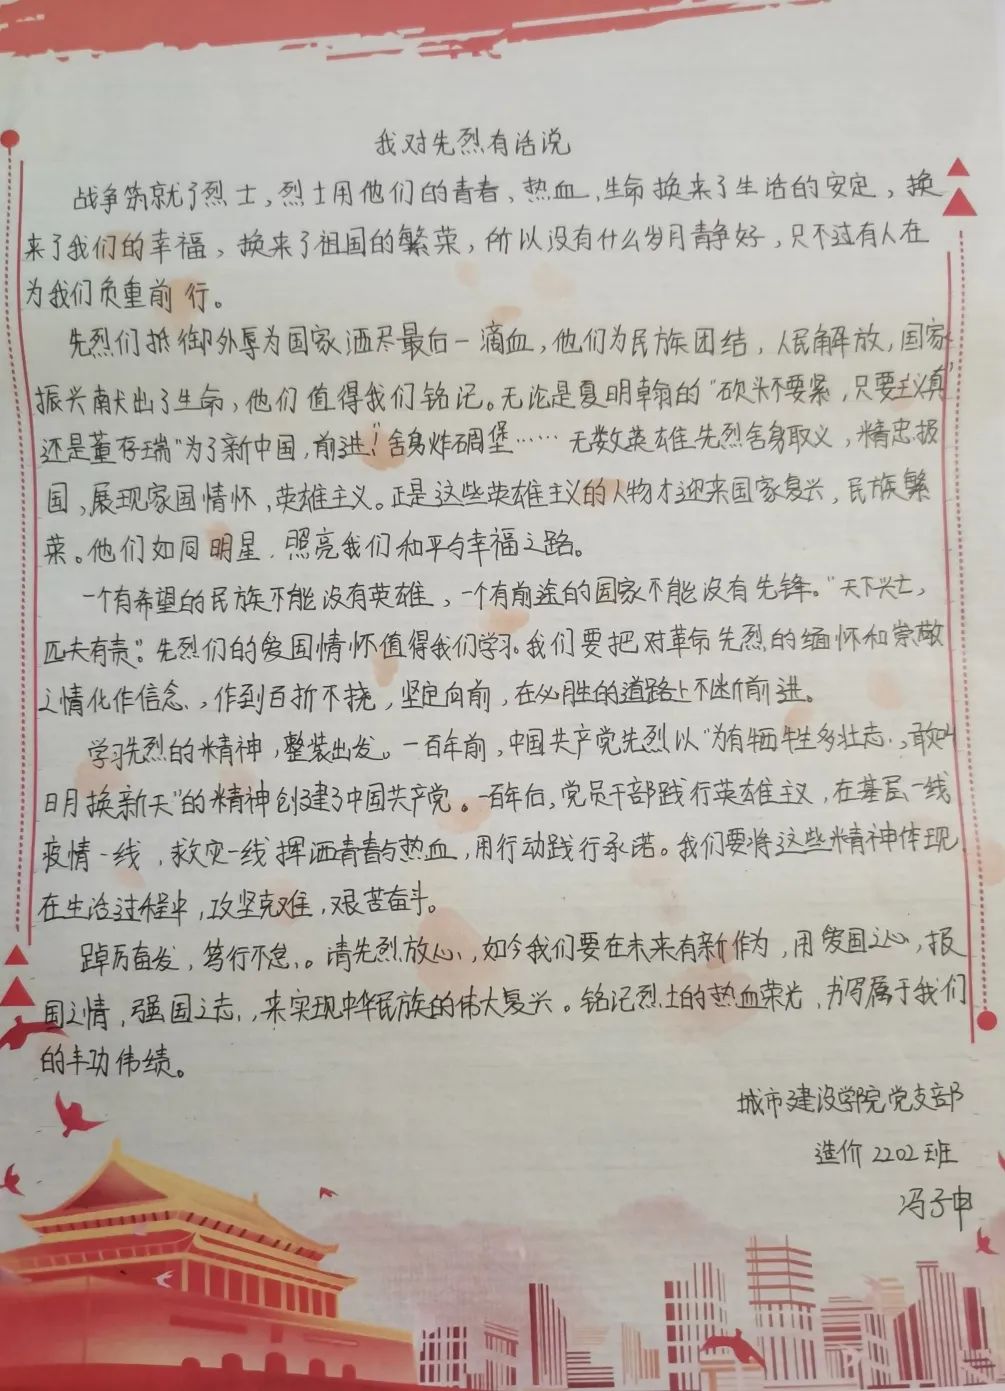 我对先烈有话说
战争筑就了烈士，烈士用他们的青春、热血、生命换来了生活的安定，换
来了我们的幸福，换来了祖国的繁荣，所以没有什么岁月静好，只不过有人在
为我们负重前行。
先烈们抵御外辱为国家洒尽最后一滴血，他们为民族团结，人民解放，国家
振兴献出了生命，他们值得我们铭记。无论是夏明翰的“砍头不要紧，只要主义真”
还是董存瑞“为了新中国，前进！”舍身炸碉堡……无数英雄先烈舍身取义，精忠报
国，展现家国情怀，英雄主义。正是这些英雄主义的人物才迎来国家复兴，民族繁
荣。他们如同明星，照亮我们和平与幸福之路。
一个有希望的民族不能没有英雄，一个有前途的国家不能没有先锋。“天下兴亡，
匹夫有责”。先烈们的爱国情怀值得我们学习。我们要把对革命先烈的缅怀和崇敬
之情化作信念，作到百折不挠，坚定向前，在必胜的道路上不断前进。
学习先烈的精神，整装出发。一百年前，中国共产党先烈以“为有牺牲多壮志，敢叫
日月换新天”的精神创建了中国共产党。一百年后，党员干部践行英雄主义，在基层一线
疫情一线，救灾一线挥洒青春与热血，用行动践行承诺。我们要将这些精神体现
在生活过程中，攻坚克难，艰苦奋斗。
踔厉奋发，笃行不怠。请先烈放心，如今我们要在未来有新作为，用爱国之心，报
国之情，强国之志，来实现中华民族的伟大复兴。铭记烈士的热血荣光，书写属于我们
的丰功伟绩。
城市建设学院党支部
造价2202班
冯子申